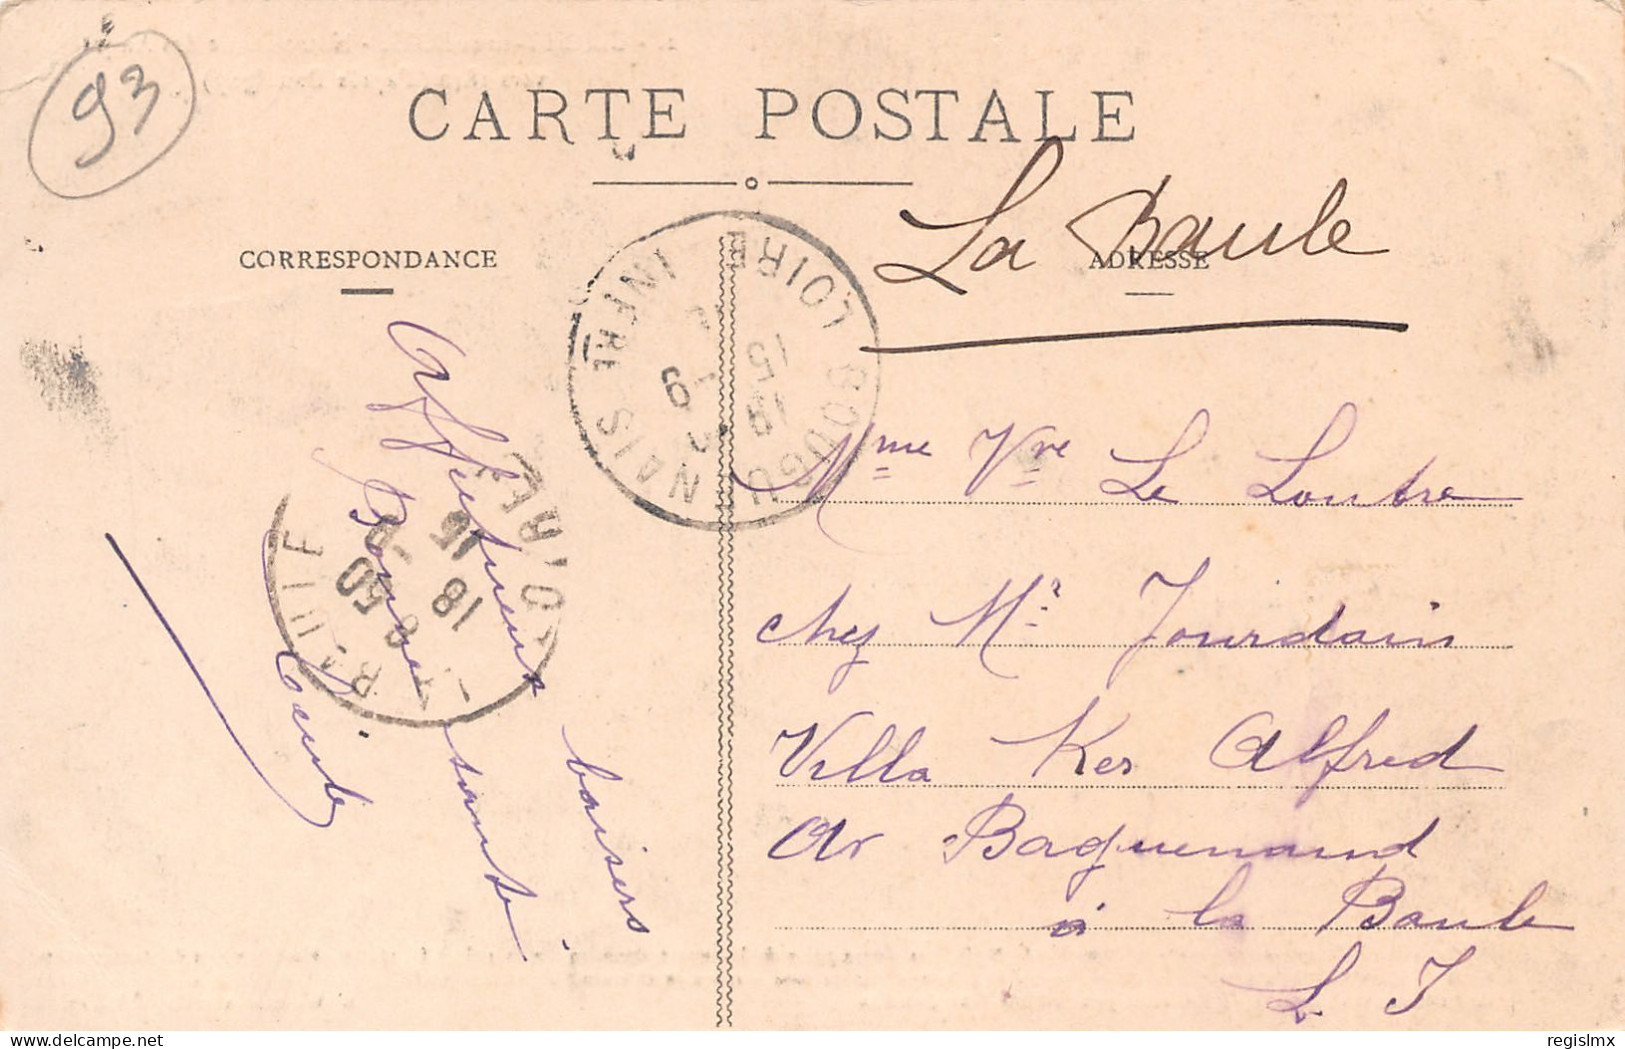 93
CARTE POSTALE
La Baule
CORRESPONDANCE
ADRESSE
Affectueux baisers
Bonne sante
LOIRE INFRE
BOUGUENAIS
18 - 9
15
18 - 9
15
Mme Vve Le Loutre
chez Mr Jourdain
Villa Ker Alfred
Av Baguenaud
à la Baule
L. I
delcampe.net
regislmx